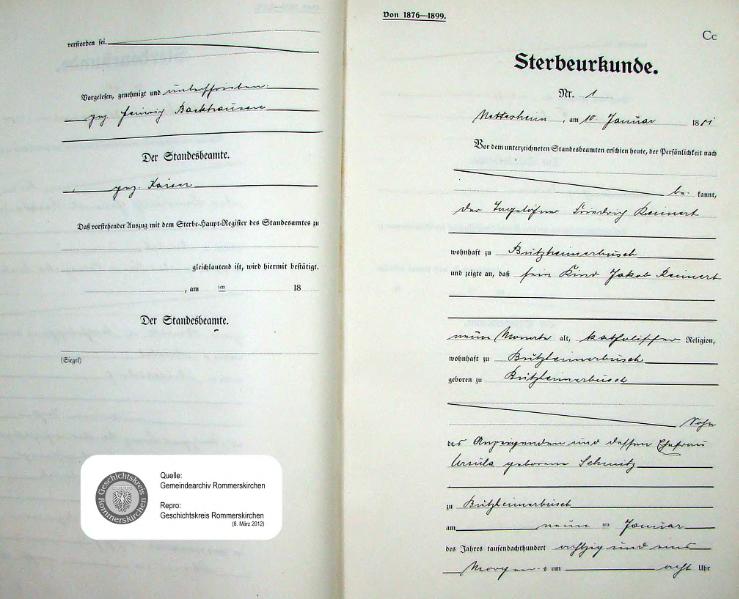 verstorben sei.
Vorgelesen, genehmigt und unterschrieben.
gez. Heinrich Backhausen
Der Standesbeamte.
gez. Kaiser
Daß vorstehender Auszug mit dem Sterbe-Haupt-Register des Standesamtes zu
gleichlautend ist, wird hiermit bestätigt.
, am ten 18
Der Standesbeamte.
(Siegel)
Geschichtskreis Rommerskirchen
Quelle:
Gemeindearchiv Rommerskirchen
Repro:
Geschichtskreis Rommerskirchen
(6. März 2012)
Von 1876—1899.
Cc
Sterbeurkunde.
Nr. 1
Nettesheim, am 10 Januar 1881
Vor dem unterzeichneten Standesbeamten erschien heute, der Persönlichkeit nach
be kannt,
der Tagelöhner Friedrich Reinert
wohnhaft zu Bützheimerbusch
und zeigte an, daß sein Kind Jakob Reinert
neun Monate alt, katholischer Religion,
wohnhaft zu Bützheimerbusch
geboren zu Bützheimerbusch
Sohn
des Anzeigenden und dessen Ehefrau
Ursula geborene Schmitz
zu Bützheimerbusch
am neun Januar
des Jahres tausendachthundert achtzig und eins
Morgens um acht Uhr